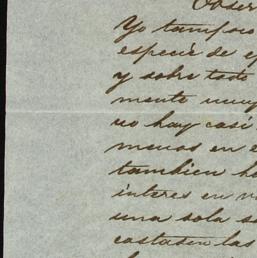 Obser
Yo tampoco
especie de
y sobre todo
mente muy
no hay casi
menos en
tambien ha
interes en
una sola
costasen las